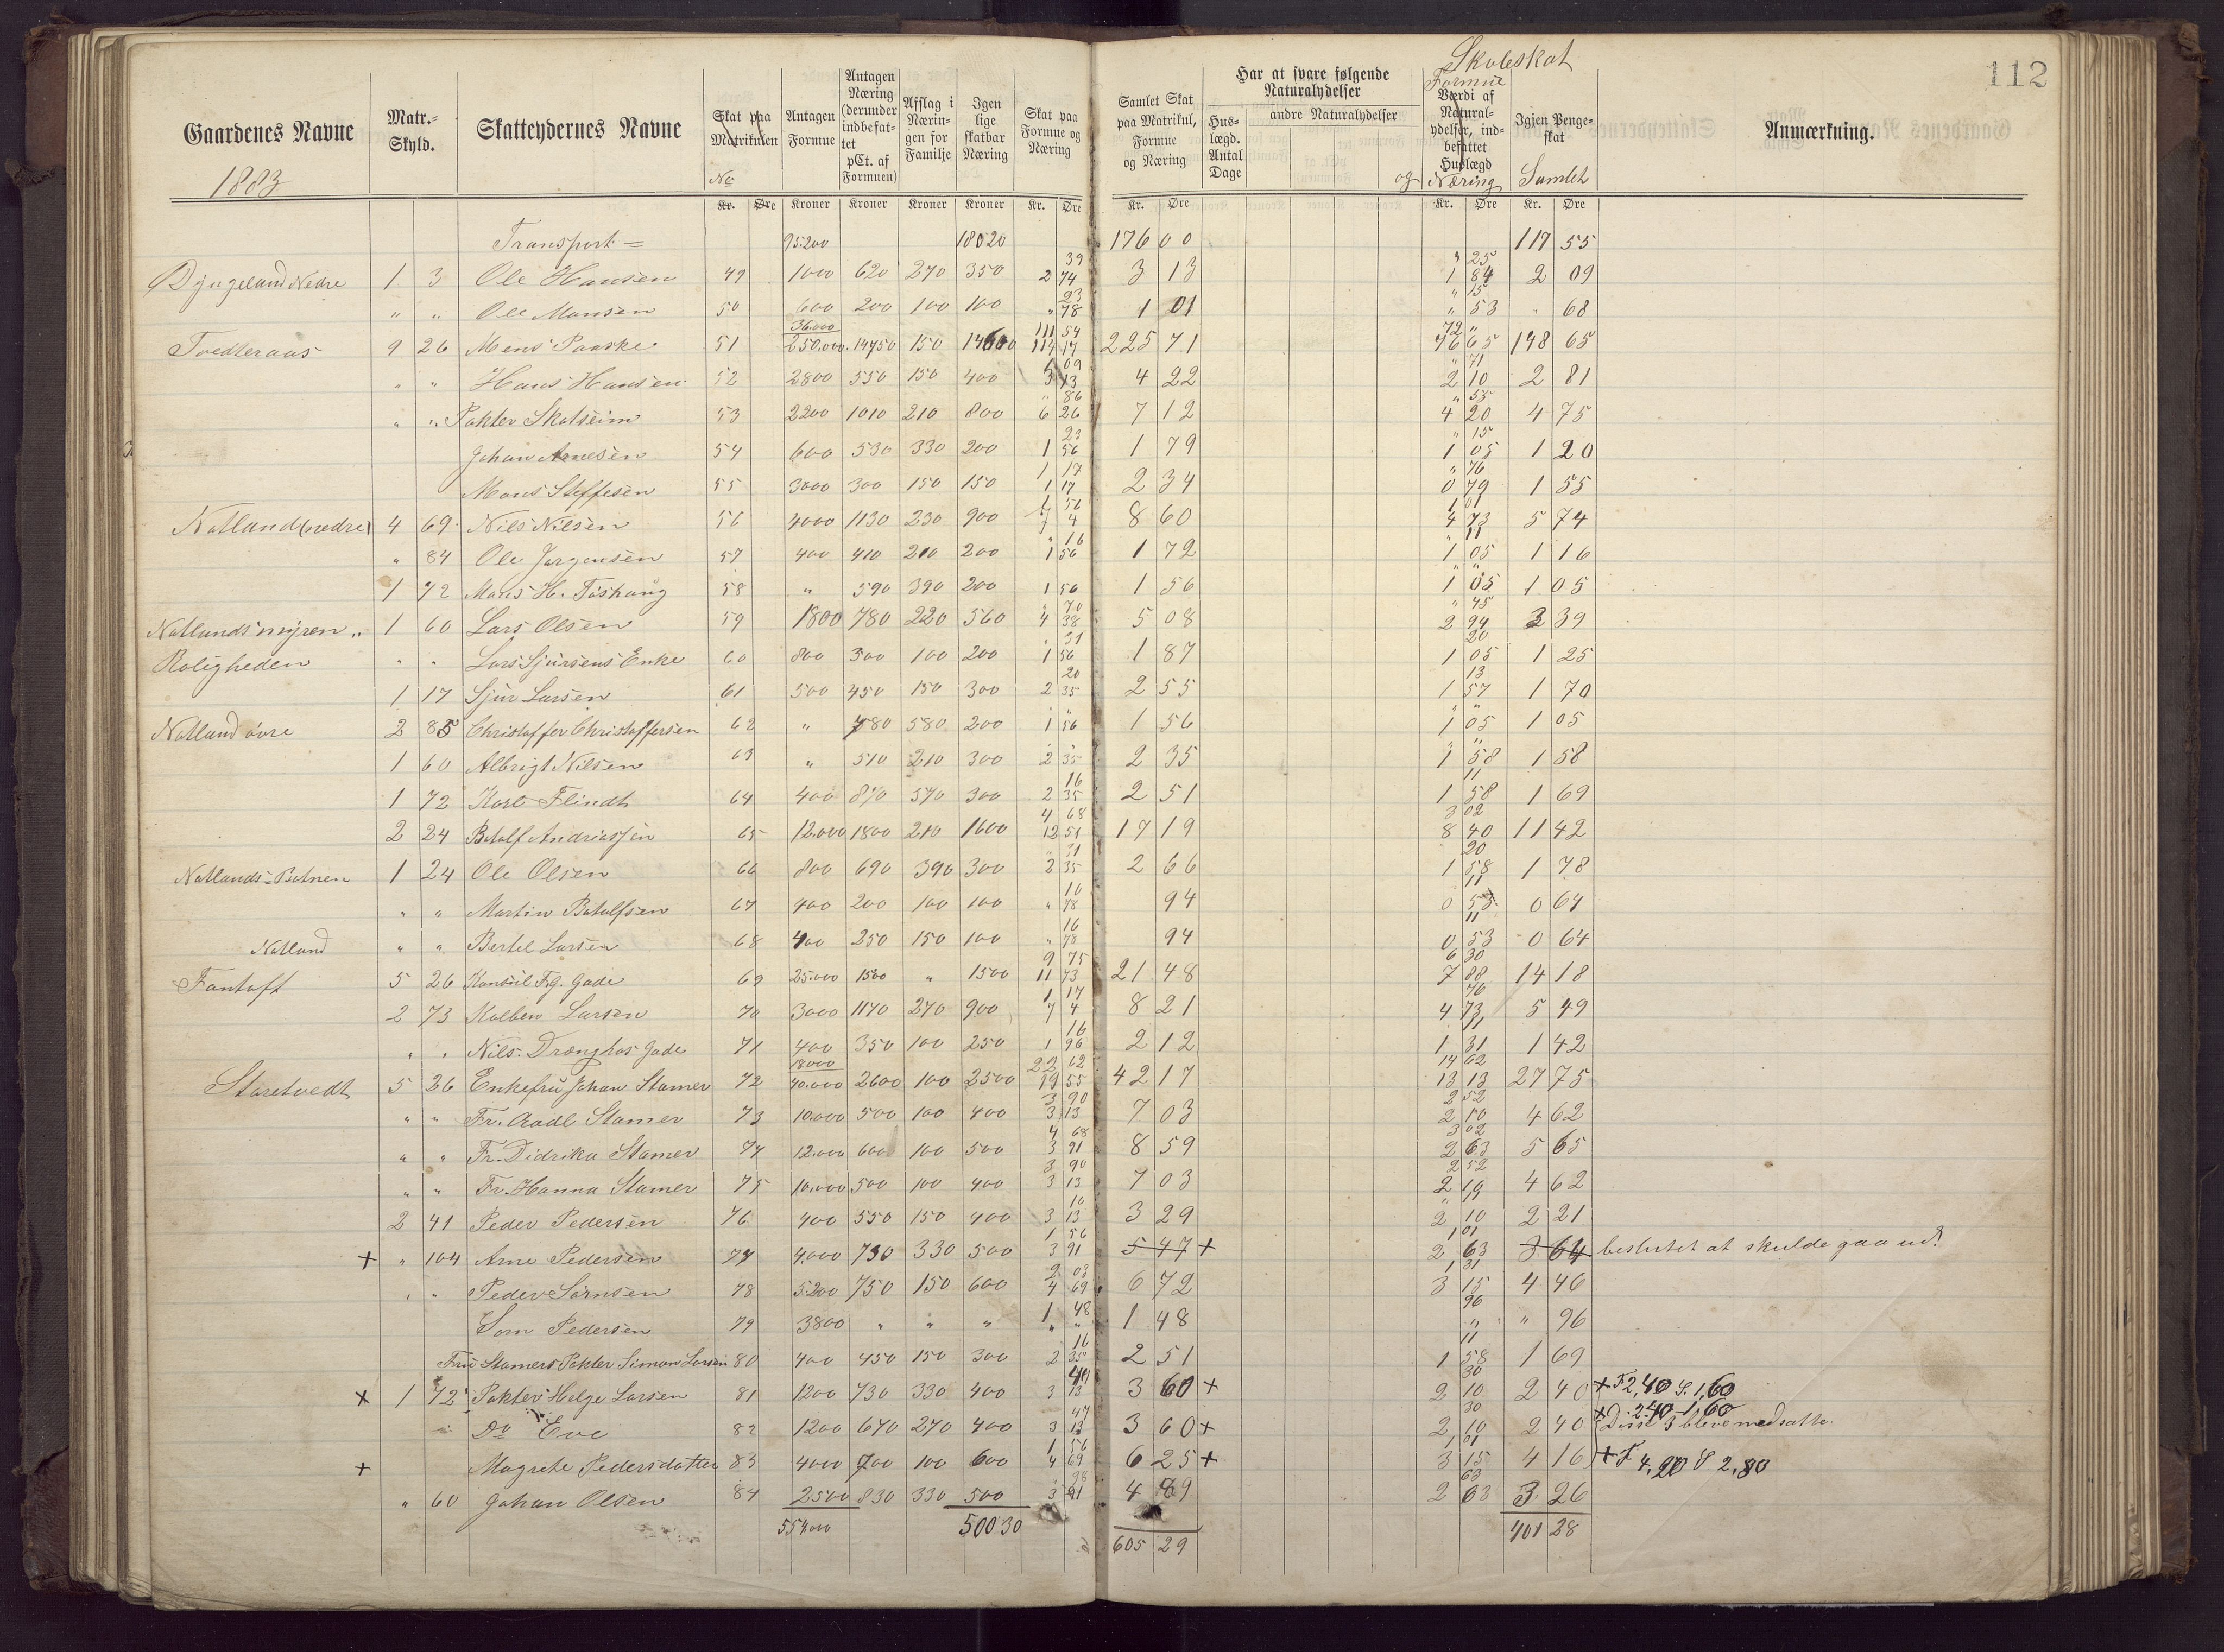 Skoleskat
112
Gaardenes Navne
Matr.= Skyld.
Skatteydernes Navne
Skat paa Matrikulen
No
Antagen Formue
Antagen Næring (derunder indbefattet pCt. af Formuen)
Afslag i Næringen for Familje
Igen lige skatbar Næring
Skat paa Formue og Næring
Samlet Skat paa Matrikul, Formue og Næring
Har at svare følgende Naturalydelser
Huslægd. Antal Dage
andre Naturalydelser
Formue
Værdi af Naturalydelser, indbefattet Huslægd
og Næring
Igjen Pengeskat
Samlet
Anmærkning.
1883
Kr. Øre Kroner Kroner Kroner Kroner Kr. Øre Kr. Øre Kr. Øre Kr. Øre
Transport = 95200 18020 176 00 117 55
Nedre 1 3 Ole Hansen 49 1000 620 270 350 39 2 74 3 13 " 25 1 84 2 09
" " Ole Monsen 50 600 200 100 100 23 " 78 1 01 " 15 " 53 " 68
Tvedteraas 9 26 Mens Paaske 51 36000 250.000 14750 150 14600 111 54 114 17 225 71 72 " 76 65 148 65
" " Hans Hansen 52 2800 550 150 400 1 09 3 13 4 22 " 71 2 10 2 81
" " Pakter Skatseim 53 2200 1010 210 800 " 86 6 26 7 12 " 55 4 20 4 75
Johan 54 600 530 330 200 23 1 56 1 79 " 15 1 05 1 20
Mons Steffesen 55 3000 300 150 150 1 17 1 17 2 34 " 76 0 79 1 55
Natland (nedre) 4 69 Nils Nilsen 56 4000 1130 230 900 1 56 7 4 8 60 1 01 4 73 5 74
" 84 Ole Jørgensen 57 400 410 210 200 " 16 1 56 1 72 " 11 1 05 1 16
1 72 Mons H. 58 " 590 390 200 1 56 1 56 " " 1 05 1 05
Natlandsmyren " 1 60 Lars Olsen 59 1800 780 220 560 " 70 4 38 5 08 " 45 2 94 3 39
Roligheden " " Lars Sjursens Enke 60 800 300 100 200 " 31 1 56 1 87 20 1 05 1 25
1 17 Sjur Larsen 61 500 450 150 300 20 2 35 2 55 13 1 57 1 70
Natland øvre 2 85 Christoffer Christoffersen 62 " 780 580 200 " " 1 56 1 56 " " 1 05 1 05
1 60 Albrigt Nilsen 63 " 510 210 300 " " 2 35 2 35 " " 1 58 1 58
1 72 Karl Flindt 64 400 870 570 300 16 2 35 2 51 11 1 58 1 69
2 24 Botolf Andriassen 65 12.000 1800 210 1600 4 68 12 51 17 19 3 02 8 40 11 42
Natlands-Botnen 1 24 Ole Olsen 66 800 690 390 300 " 31 2 35 2 66 20 1 58 1 78
" " Martin Botolfsen 67 400 200 100 100 16 " 78 94 11 0 53 0 64
Natland " " Bertel Larsen 68 400 250 150 100 16 " 78 94 11 0 53 0 64
Fantoft 5 26 Konsul F.G. Gade 69 25.000 1500 " 1500 9 75 11 73 21 48 6 30 7 88 14 18
2 73 Kolben Larsen 70 3000 1170 270 900 1 17 7 4 8 21 76 4 73 5 49
" " Nils Gade 71 400 350 100 250 16 1 96 2 12 11 1 31 1 42
Storetvedt 5 36 Enkefru Johan Stamer 72 18000 40.000 2600 100 2500 22 62 19 55 42 17 14 62 13 13 27 75
" " Fr. Aadl Stamer 73 10.000 500 100 400 3 90 3 13 7 03 2 52 2 10 4 62
" " Fr. Didrika Stamer 74 12.000 600 100 500 4 68 3 91 8 59 3 02 2 63 5 65
" " Fr. Hanna Stamer 75 10.000 500 100 400 3 90 3 13 7 03 2 52 2 10 4 62
2 41 Peder Pedersen 76 400 550 150 400 16 3 13 3 29 " 11 2 10 2 21
+ " 104 Arne Pedersen 77 4.000 730 330 500 1 56 3 91 5 47 + 1 01 2 63 3 64 besluttet at skulde gaa ud.
" " Peder Sørnsen 78 5200 750 150 600 2 03 4 69 6 72 1 31 3 15 4 46
Sørn Pedersen 79 3800 " " " 1 48 " " 1 48 96 " " " 96
Fru Stamers Pakter Simon Larsen 80 400 450 150 300 16 2 35 2 51 11 1 58 1 69
+ 1 72 Pakter Helge Larsen 81 1200 730 330 400 47 3 13 3 60 + 30 2 10 2 40 + F 2,40 S. 1,60
Do Eve 82 1200 670 270 400 47 3 13 3 60 + 30 2 10 2 40 + 2.40 - 1,60
Disse 3 bleve nedsatte.
+ Magrete Pedersdatter 83 4000 700 100 600 1 56 4 69 6 25 + 1 01 3 15 4 16 + F 4,20 S 2,80
" 60 Johan Olsen 84 2500 830 330 500 98 3 91 4 89 63 2 63 3 26
554000 50030 605 29 401 28